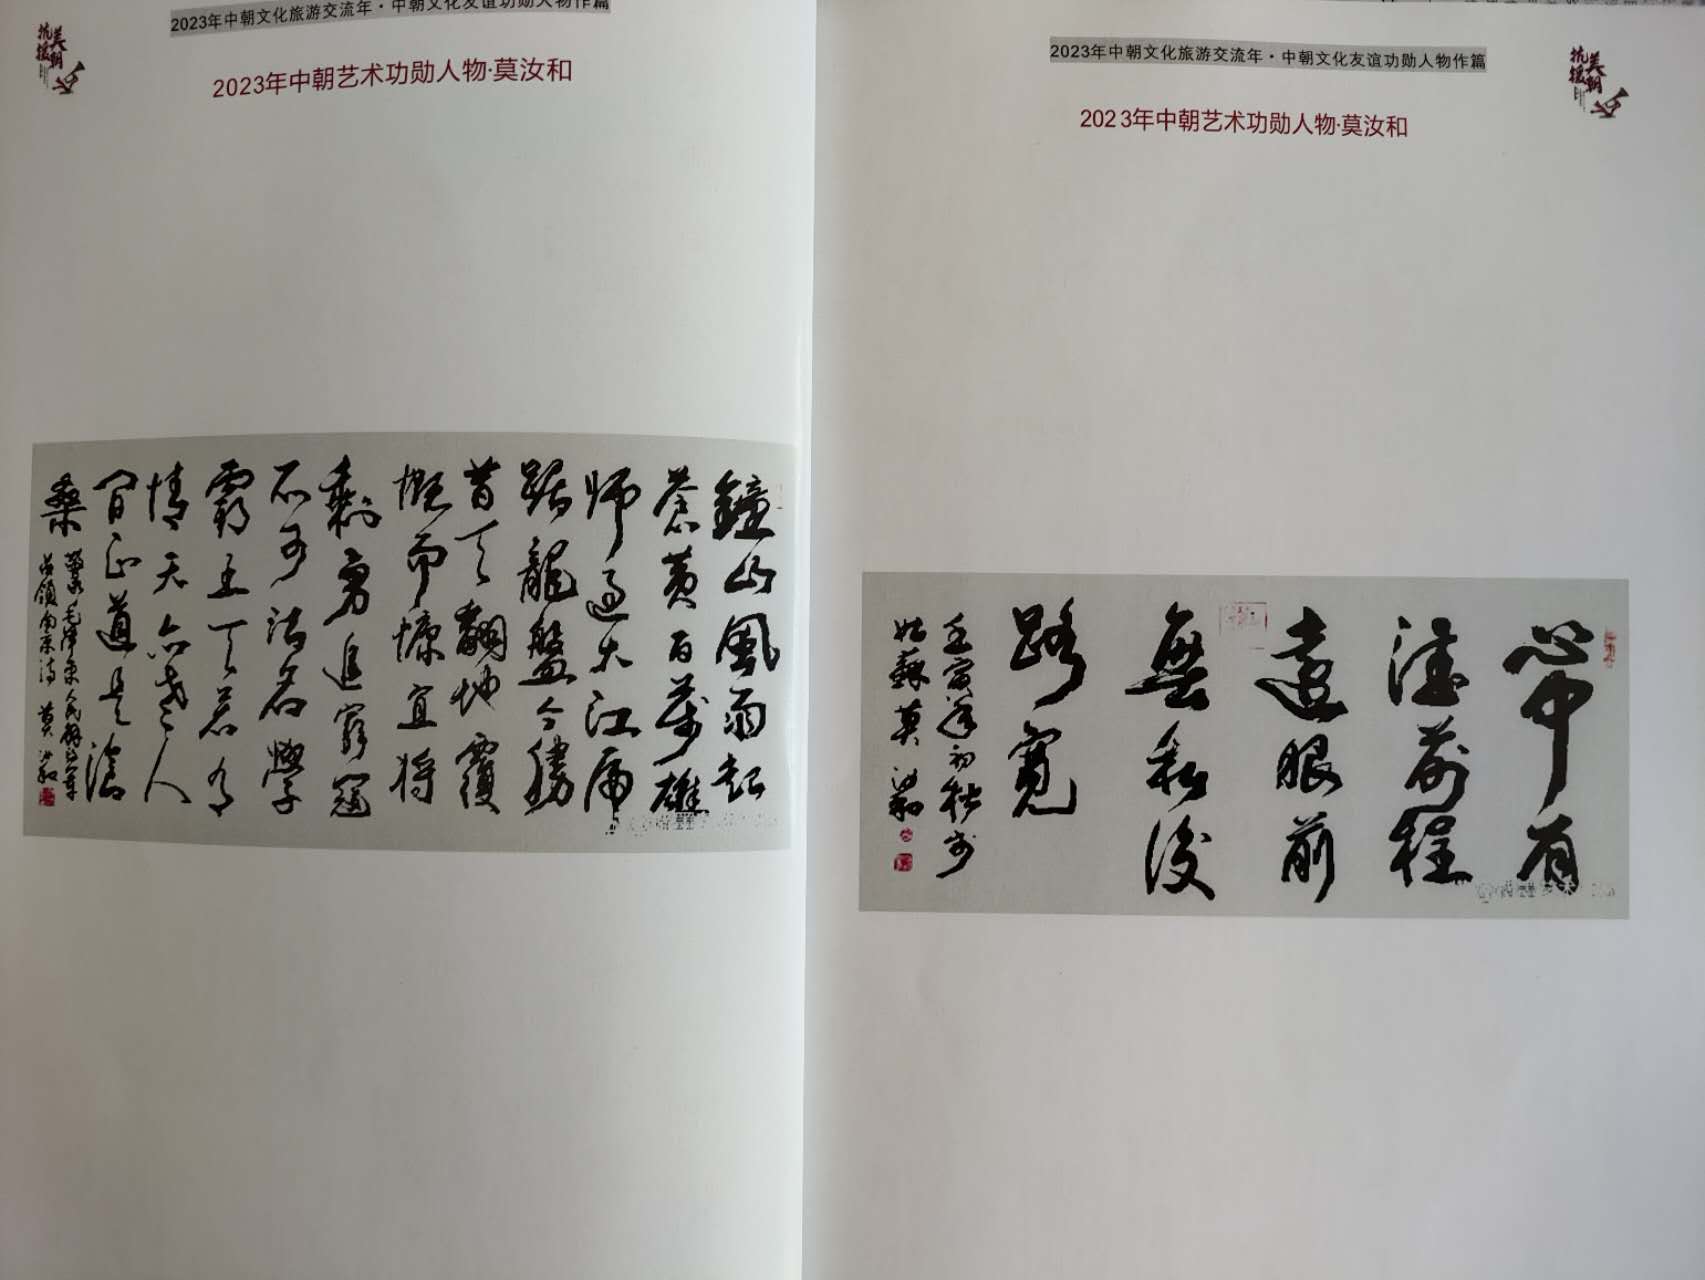 2023年中朝文化旅游交流年·中朝文化友谊功勋人物作篇
抗美
援朝
2023年中朝艺术功勋人物·莫汝和
鐘山風雨起
蒼黄百萬雄
师過大江虎
踞龍盤今勝
昔天翻地覆
慨而慷宜将
剩勇追窮寇
不可沽名學
霸王天若有
情天亦老人
间正道是滄
桑
毛澤東人民解放軍
占領南京詩 莫汝和
2023年中朝文化旅游交流年·中朝文化友谊功勋人物作篇
抗美
援朝
2023年中朝艺术功勋人物·莫汝和
心中有
法前程
遠眼前
無私後
路寬
壬寅年初秋於
姑蘇莫汝和